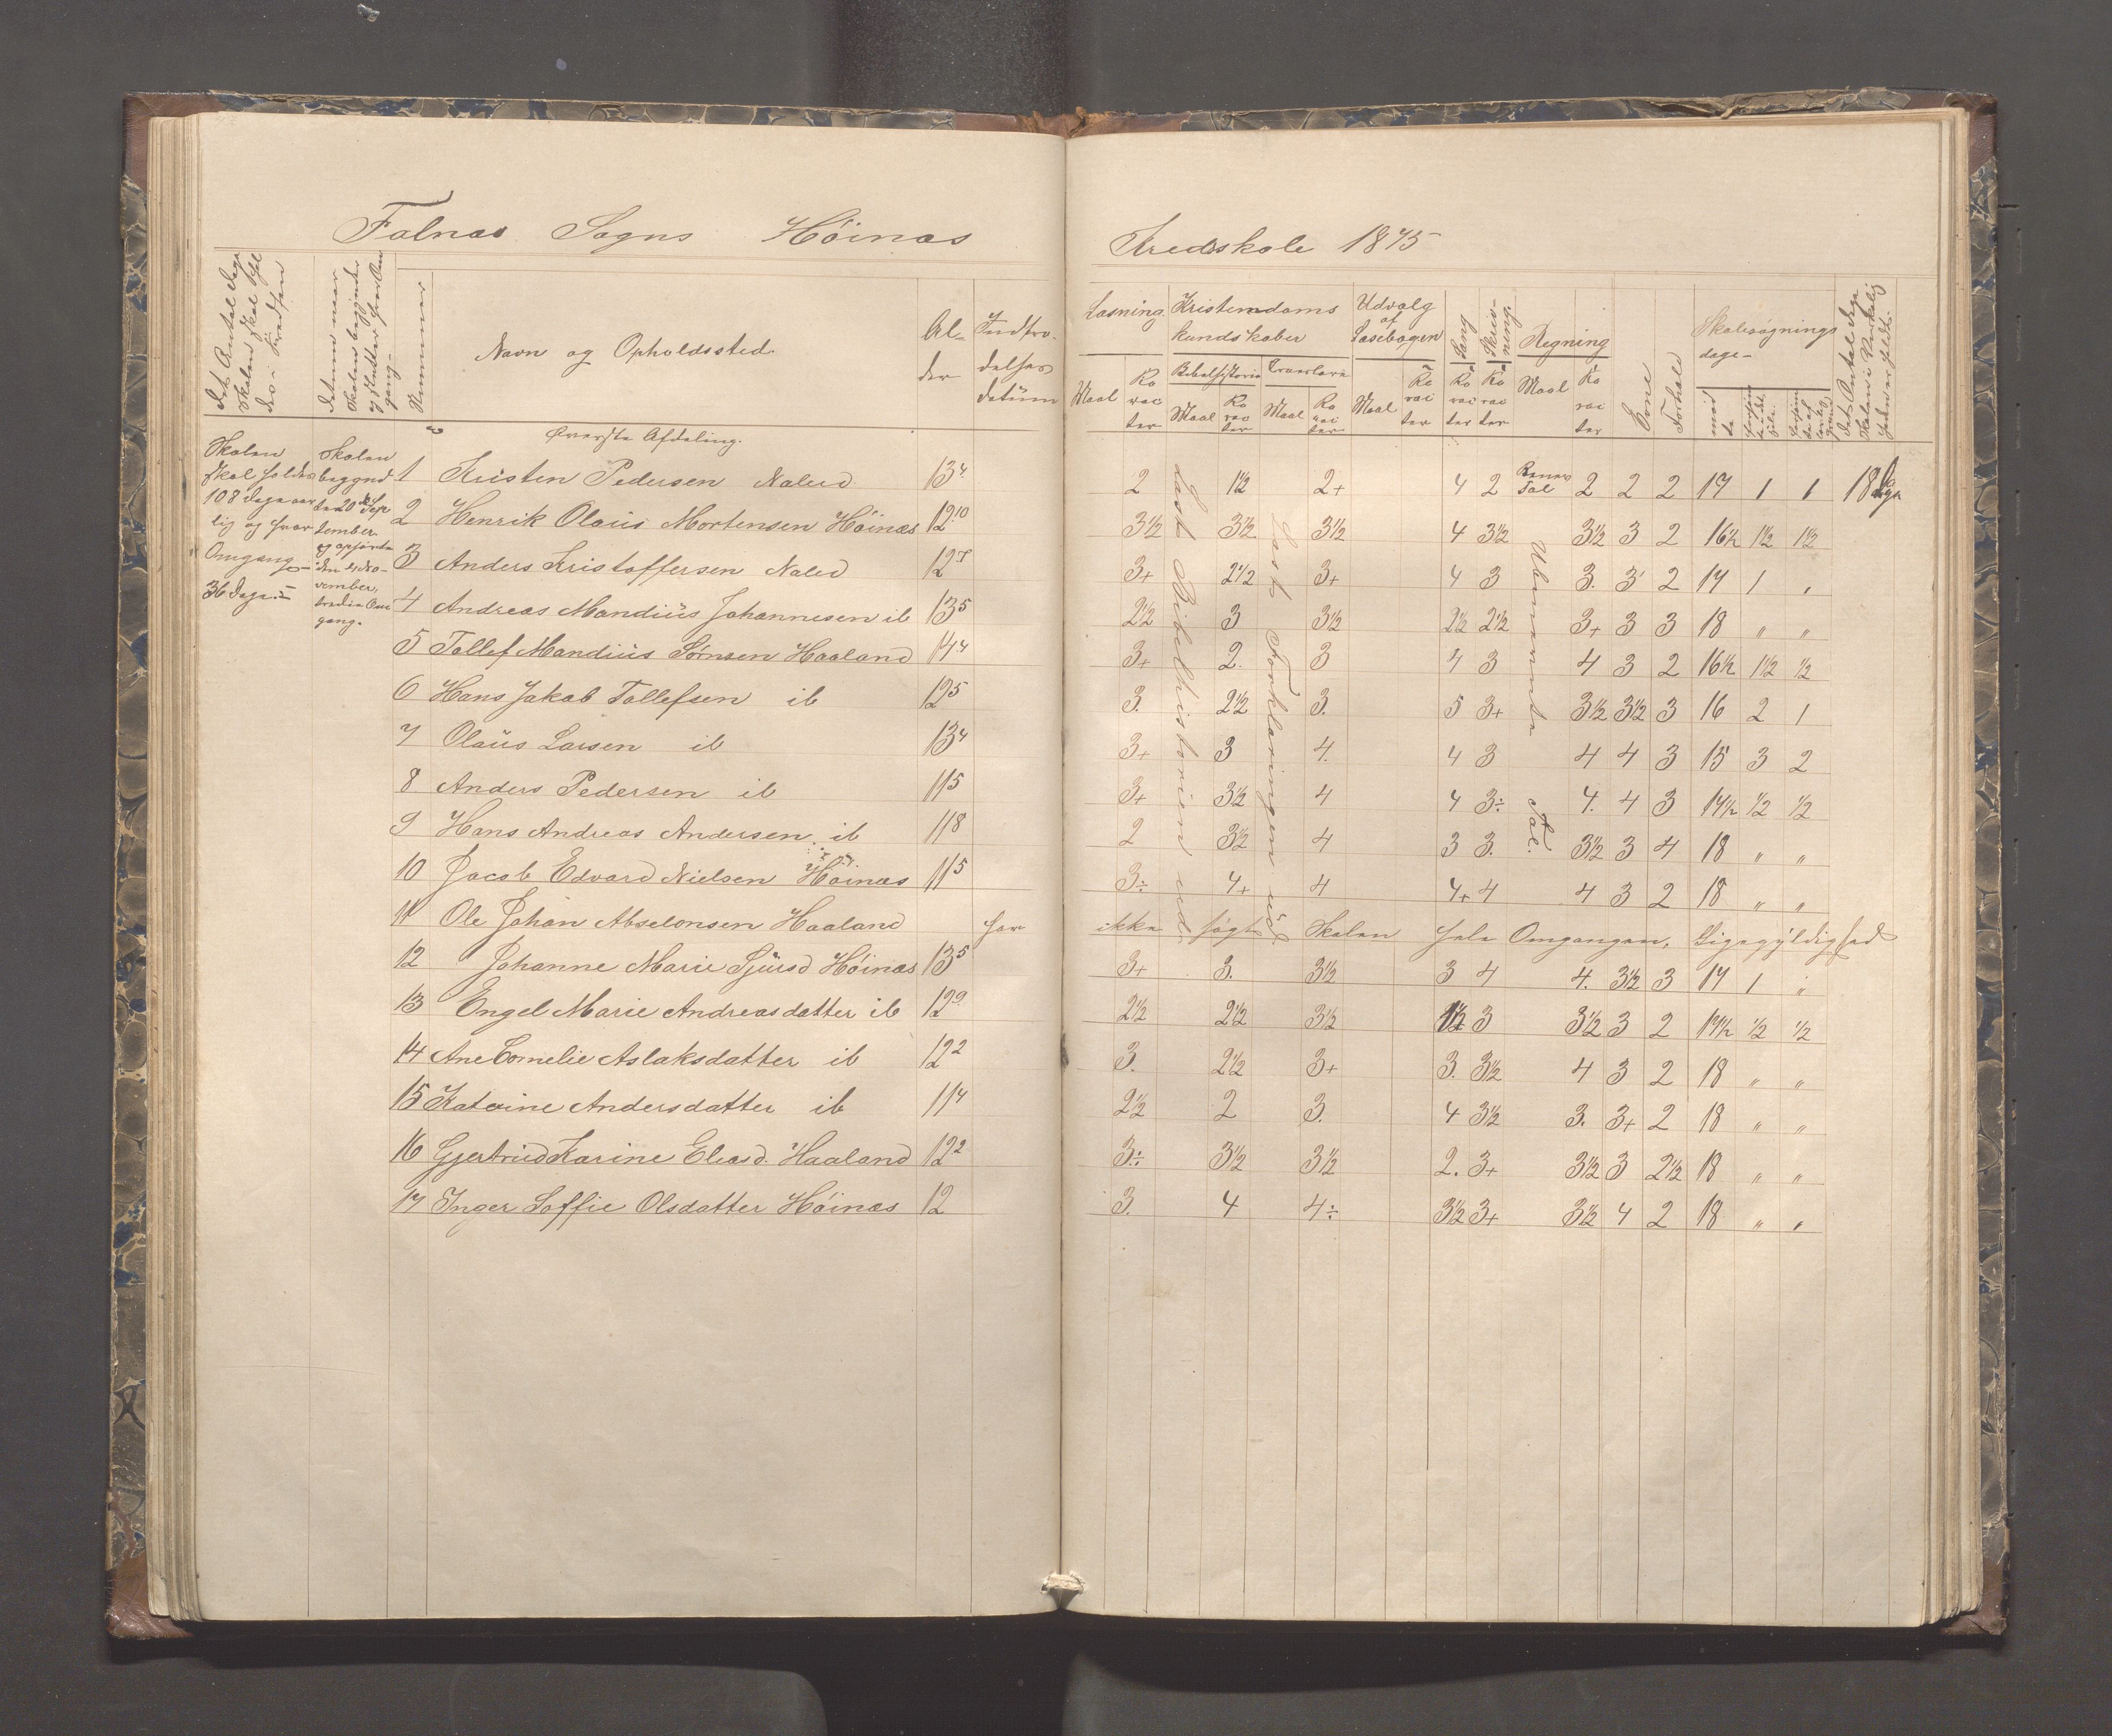 Falnas Sogns Höinas Kredsskole 1875
Det Antal Dage Skolen skal holdes i Kredsen
Datum naar Skolen begynder og slutter hver Omgang
Nummer
Navn og Opholdssted.
Alder
Indtrædelsesdatüm
Læsning
Maal
Karacter
Kristendomskundskaber
Bibelhistorie
Maal
Karacter
Troeslære
Maal
Karacter
Udvalg af Læsebogen
Maal
Karacter
Sang
Karacter
Skrivning
Karacter
Regning
Maal
Karacter
Evne
Forhold
Skolesøgningsdage
mødte
Det Antal Dage Skolen i Virkelighed er holdt.
Øverste Afdeling.
Skolen skal holdes 108 Dage aarlig og hver Omgang 36 Dage.
Skolen begynd den 20de September og ophörte den November, tredie Omgang.
1 Kristen Pedersen Naled 13 4 2 1½ 2+ 4 2 Benævn Tal 2 2 2 17 1 1 18 Dage
2 Henrik Olaüs Mortensen Höinæs 12 10 3½ 3½ 3½ 4 3½ 3½ 3 2 16½ 1½ 1½
3 Anders Kristoffersen Naled 12 7 3+ 2½ 3+ 4 3 3. 3 2 17 1 "
4 Andreas Mandiüs Johannesen ib 13 5 2½ 3 3½ 2½ 2½ 3+ 3 3 18 " "
5 Tollef Mandiüs Sörnsen Haaland 14 4 3+ 2. 3 4 3 4 3 2 16½ 1½ ½
6 Hans Jakob Tollefsen ib 12 5 3. 2½ 3. 5 3+ 3½ 3½ 3 16 2 1
7 Olaüs Larsen ib 13 4 3+ 3 4. 4 3 4 4 3 15 3 2
8 Anders Pedersen ib 11 5 3+ 3½ 4 4 3÷ 4. 4 3 17½ ½ ½
9 Hans Andreas Andersen ib 11 8 2 3½ 4 3 3. 3½ 3 4 18 " "
10 Jacob Edvard Nielsen Höinæs 11 5 3÷ 4+ 4 4+ 4 4 3 2 18 " "
11 Ole Johan Abselonsen Haaland har ikke søgt Skolen hele Omgangen, Ligegyldighed
12 Johanne Marie Sjürsd Höinæs 13 5 3+ 3. 3½ 3 4 4. 3½ 3 17 1 "
13 Engel Marie Andreasdatter ib 12 9 2½ 2½ 3½ 1½ 3 3½ 3 2 17½ ½ ½
14 Ane Cornelie Aslaksdatter ib 12 2 3. 2½ 3+ 3. 3½ 4 3 2 18 " "
15 Katrine Andersdatter ib 11 4 2½ 2 3. 4 3½ 3. 3+ 2 18 " "
16 Gjertrüd Karine Eliasd. Haaland 12 2 3÷ 3½ 3½ 2. 3+ 3½ 3 2½ 18 " "
17 Inger Soffie Olsdatter Höinæs 12 3. 4 4÷ 3½ 3+ 3½ 4 2 18 " "
Læst Bibelhistorien ud.
Læst Forklaringen üd.
Ubenævnte Tal.